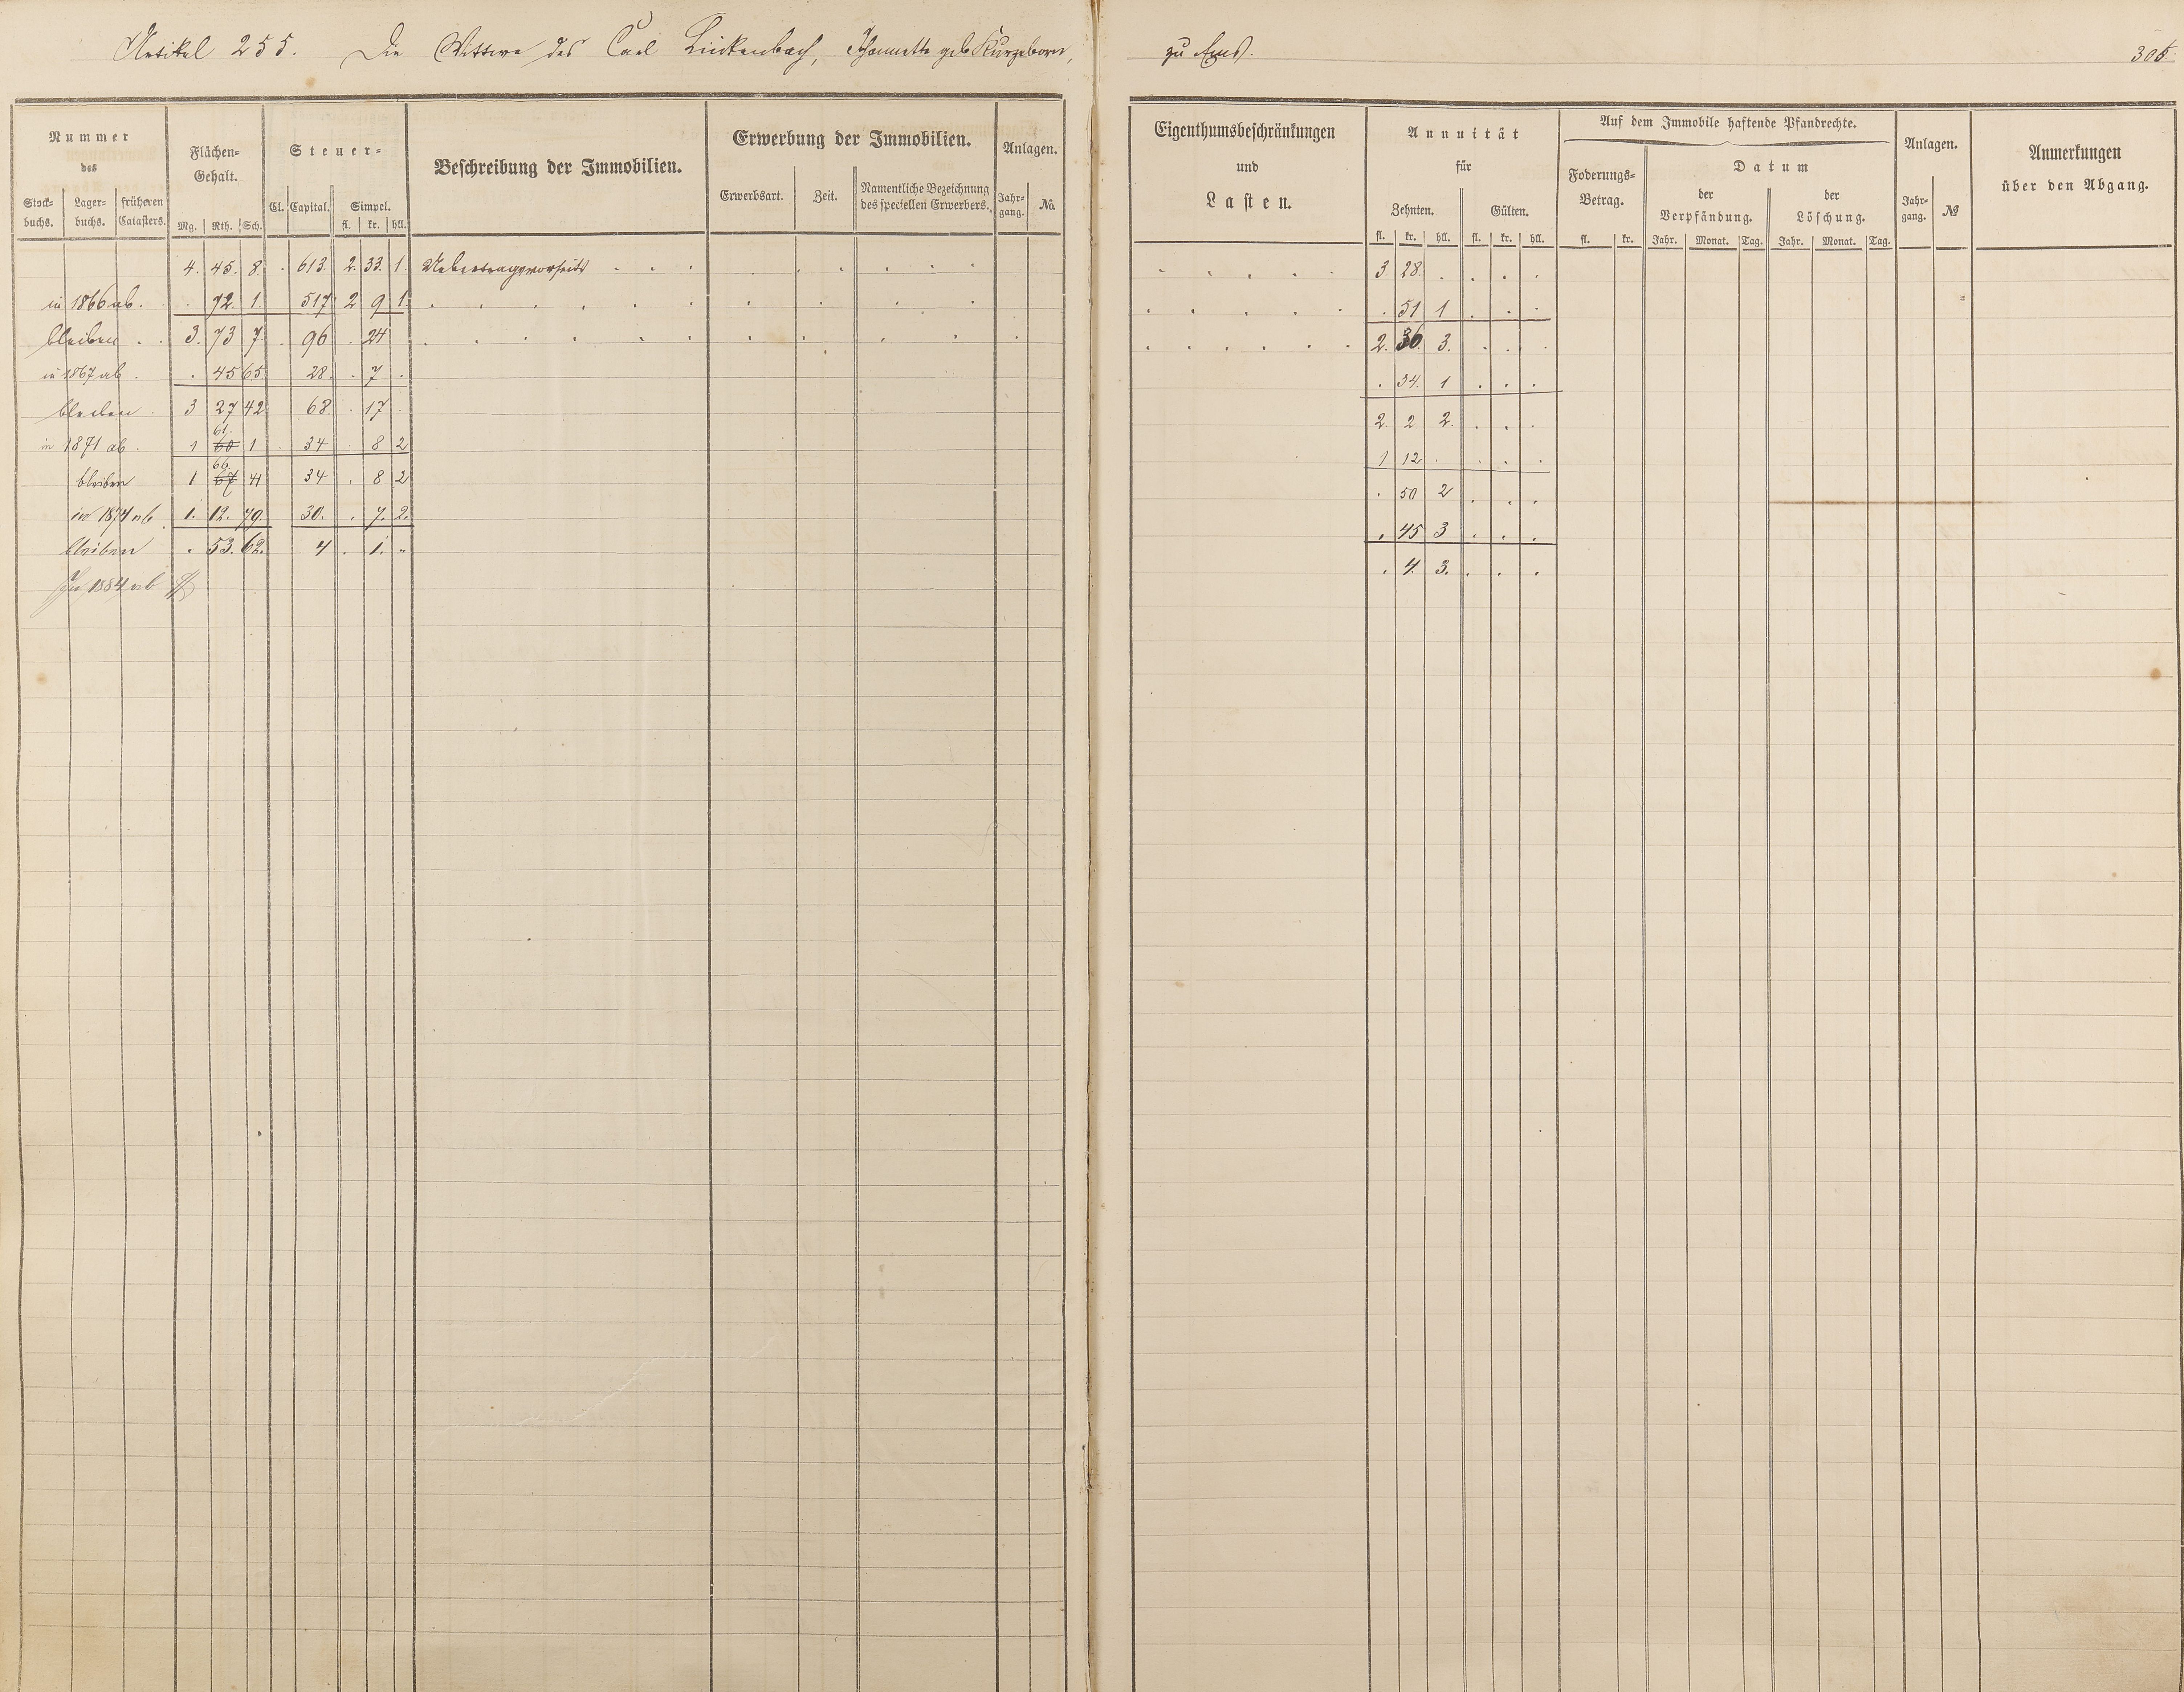 Artikel 255. Die Wittwe des Carl Lückenbach, Jhannette geb. Kurzeborn, zu Ems. 305.
Nummer des
Stock-buchs. Lager-buchs. früheren Catasters.
Flächen-Gehalt.
Mg. Rth. Sch.
Steuer-
Cl. Capital. Simpel.
fl. kr. hll.
Beschreibung der Immobilien.
Erwerbung der Immobilien.
Erwerbsart. Zeit. Namentliche Bezeichnung des speciellen Erwerbers.
Anlagen.
Jahr-gang. No.
Eigenthumsbeschränkungen und Lasten.
Annuität für
Zehnten. Gülten.
fl. kr. hll. fl. kr. hll.
Auf dem Immobile haftende Pfandrechte.
Foderungs-Betrag.
fl. kr.
Datum
der Verpfändung. der Löschung.
Jahr. Monat. Tag. Jahr. Monat. Tag.
Anlagen.
Jahr-gang. No
Anmerkungen über den Abgang.
4. 45. 8. . 613. 2. 33. 1. Uebertrag . . . 3 28. . . . .
in 1866 ab. . 72. 1. 517 2 9 1. . 51 1 . . .
bleiben . . 3. 73 7. . 96 . 24 2. 36. 3. . . .
in 1867 ab . . 45 65. 28. . 7 . . 34. 1 . . .
bleiben . 3 27 42 68. . 17 . 2. 2 2. . . .
in 1871 ab . 1 60 61. 1 . 34 . 8 2 1 12 . . . .
bleiben 1 67 66. 41 34 . 8 2 . 50 2 . . .
in 1874 ab . 1. 12. 79. 30. . 7. 2. . 45 3 . . .
bleiben . 53. 62. 4 . 1. . . 4. 3. . . .
In 1884 ab